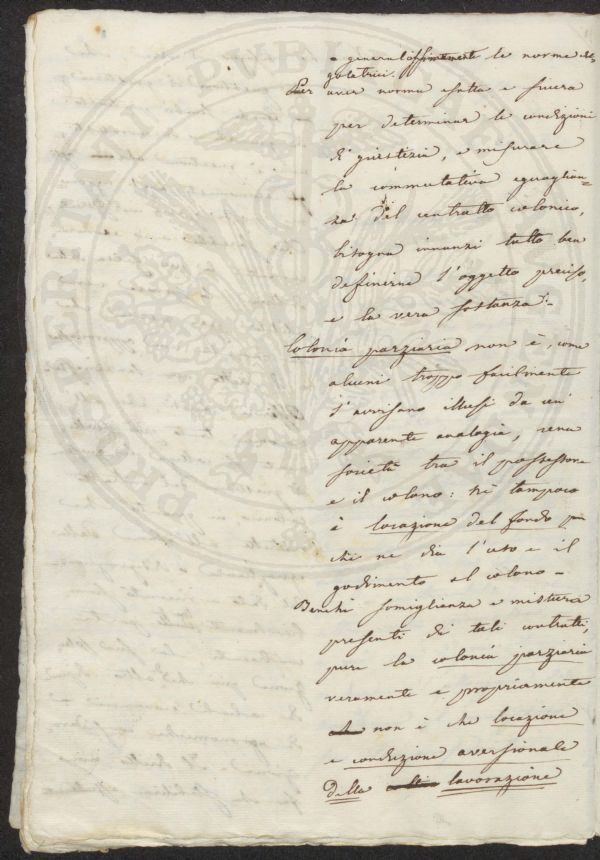 e generalissimamente le norme re=
golatrici.
Per aver norma esatta e sicura
per determinar le condizioni
di giustizia, e misurare
la commutativa eguaglian=
za del contratto colonico,
bisogna innanzi tutto ben
definirne l'oggetto preciso,
e la vera sostanza:-
Colonia parziaria non è, come
alcuni troppo facilmente
l'avvisano illusi da un'
apparente analogia, vera
società tra il possessore
e il colono: nè tampoco
è locazione del fondo per
chi ne dia l'uso e il
godimento al colono-
Benchè somiglianza e mistura
presenti di tali contratti,
pure la colonia parziaria
veramente e propriamente
non è che locazione
e condizione aversionale
della lavorazione